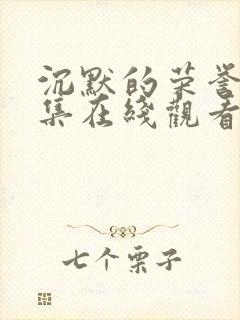 沉默的荣誉
集在线观看
七个栗子